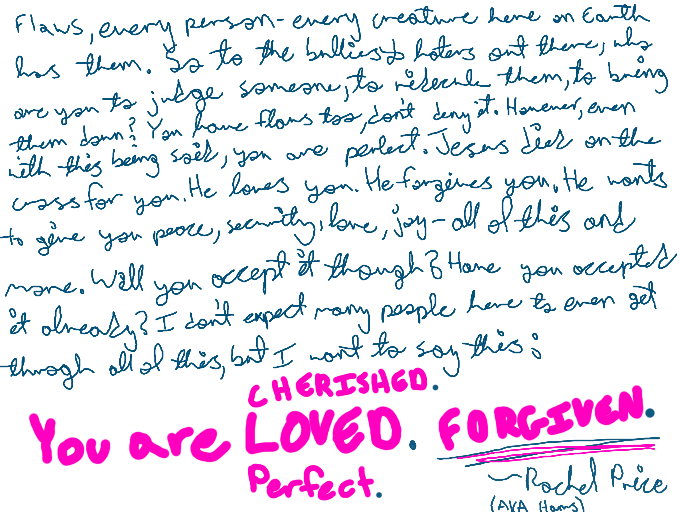 Flaws, every person - every creature here on Earth
has them. So to the bullies & haters out there, who
are you to judge someone, to ridicule them, to bring
them down? You have flaws too, don't deny it. However, even
with this being said, you are perfect. Jesus died on the
cross for you. He loves you. He forgives you. He wants
to give you peace, security, love, joy - all of this and
more. Will you accept it though? Have you accepted
it already? I don't expect many people here to even get
through all of this, but I want to say this:
CHERISHED.
You are LOVED. FORGIVEN.
Perfect.
~Rachel Price
(AKA Hams)